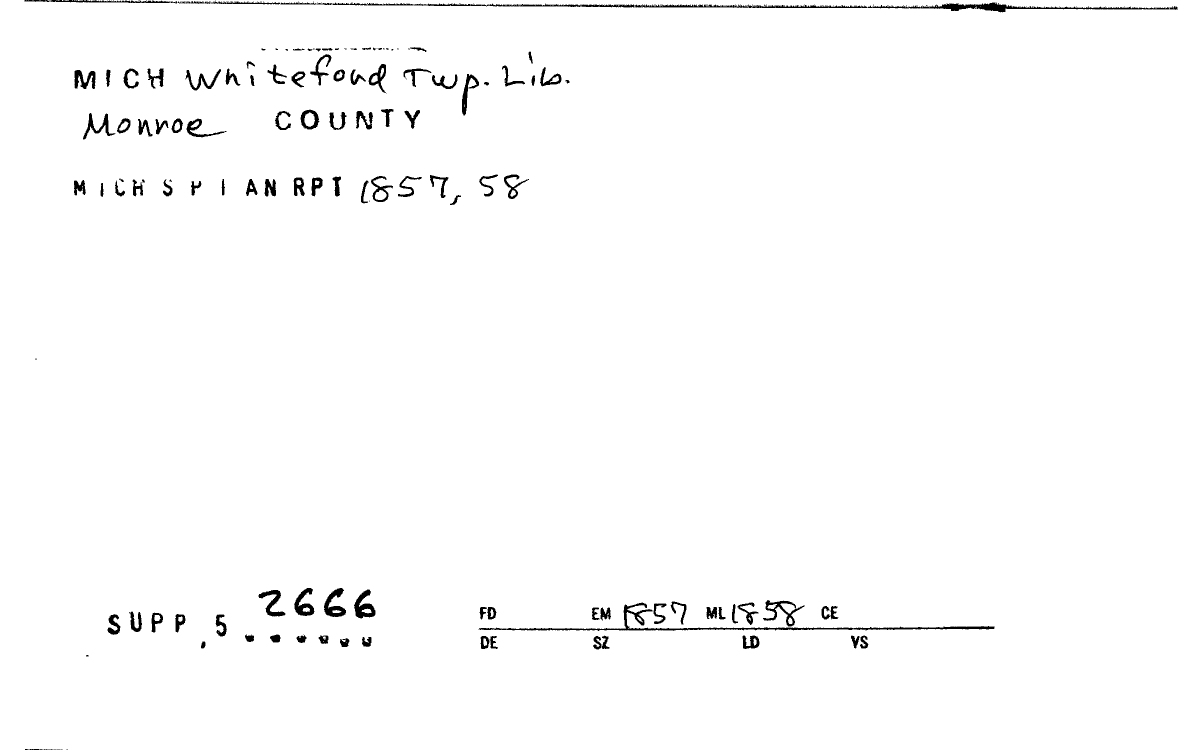 MICH Whiteford Twp. Lib.
Monroe COUNTY
MICH S P I AN RPT 1857, 58
2666
SUPP.5 ......
FD EM 1857 ML 1858 CE
DE SZ LD VS